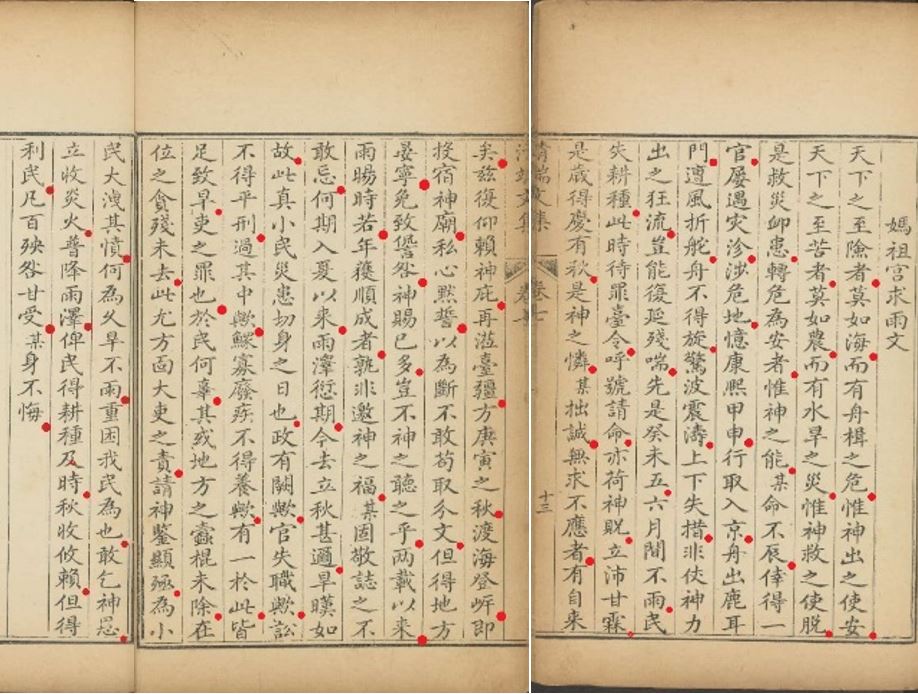 媽祖宮求雨文
天下之至險者莫如海而有舟楫之危惟神出之使安
天下之至苦者莫如農而有水旱之災惟神救之使脫
是救災卹患轉危為安者惟神之能某命不辰倖得一
官屢遇災沴涉危地憶康熙甲申行取入京舟出鹿耳
門遭風折舵舟不得旋驚波震濤上下失措非仗神力
出之狂流豈能復延殘喘先是癸未五六月間不雨民
失耕種此時待罪臺令呼號請命亦荷神貺立沛甘霖
是歲得慶有秋是神之憐某拙誠無求不應者有自來
清端文集 卷七
十三
矣茲復仰賴神庇再涖臺疆方庚寅之秋渡海登岸即
投宿神廟私心默誓以為斷不敢苟取分文但得地方
晏寧免致愆咎神賜已多豈不神之聽之乎两載以來
雨暘時若年穫順成者孰非邀神之福某固敬誌之不
敢忘何期入夏以來雨澤愆期今去立秋甚邇旱暵如
故此真小民災患切身之日也政有闕歟官失職歟訟
不得平刑過其中歟鰥寡廢疾不得養歟有一於此皆
足致旱吏之罪也於民何辜其或地方之蠹棍未除在
位之貪殘未去此尤方面大吏之責請神鑒顯殛為小
民大洩其憤何為久旱不雨重困我民為也敢乞神恩
立收炎火普降雨澤俾民得耕種及時秋收攸賴但得
利民凡百殃咎甘受某身不悔